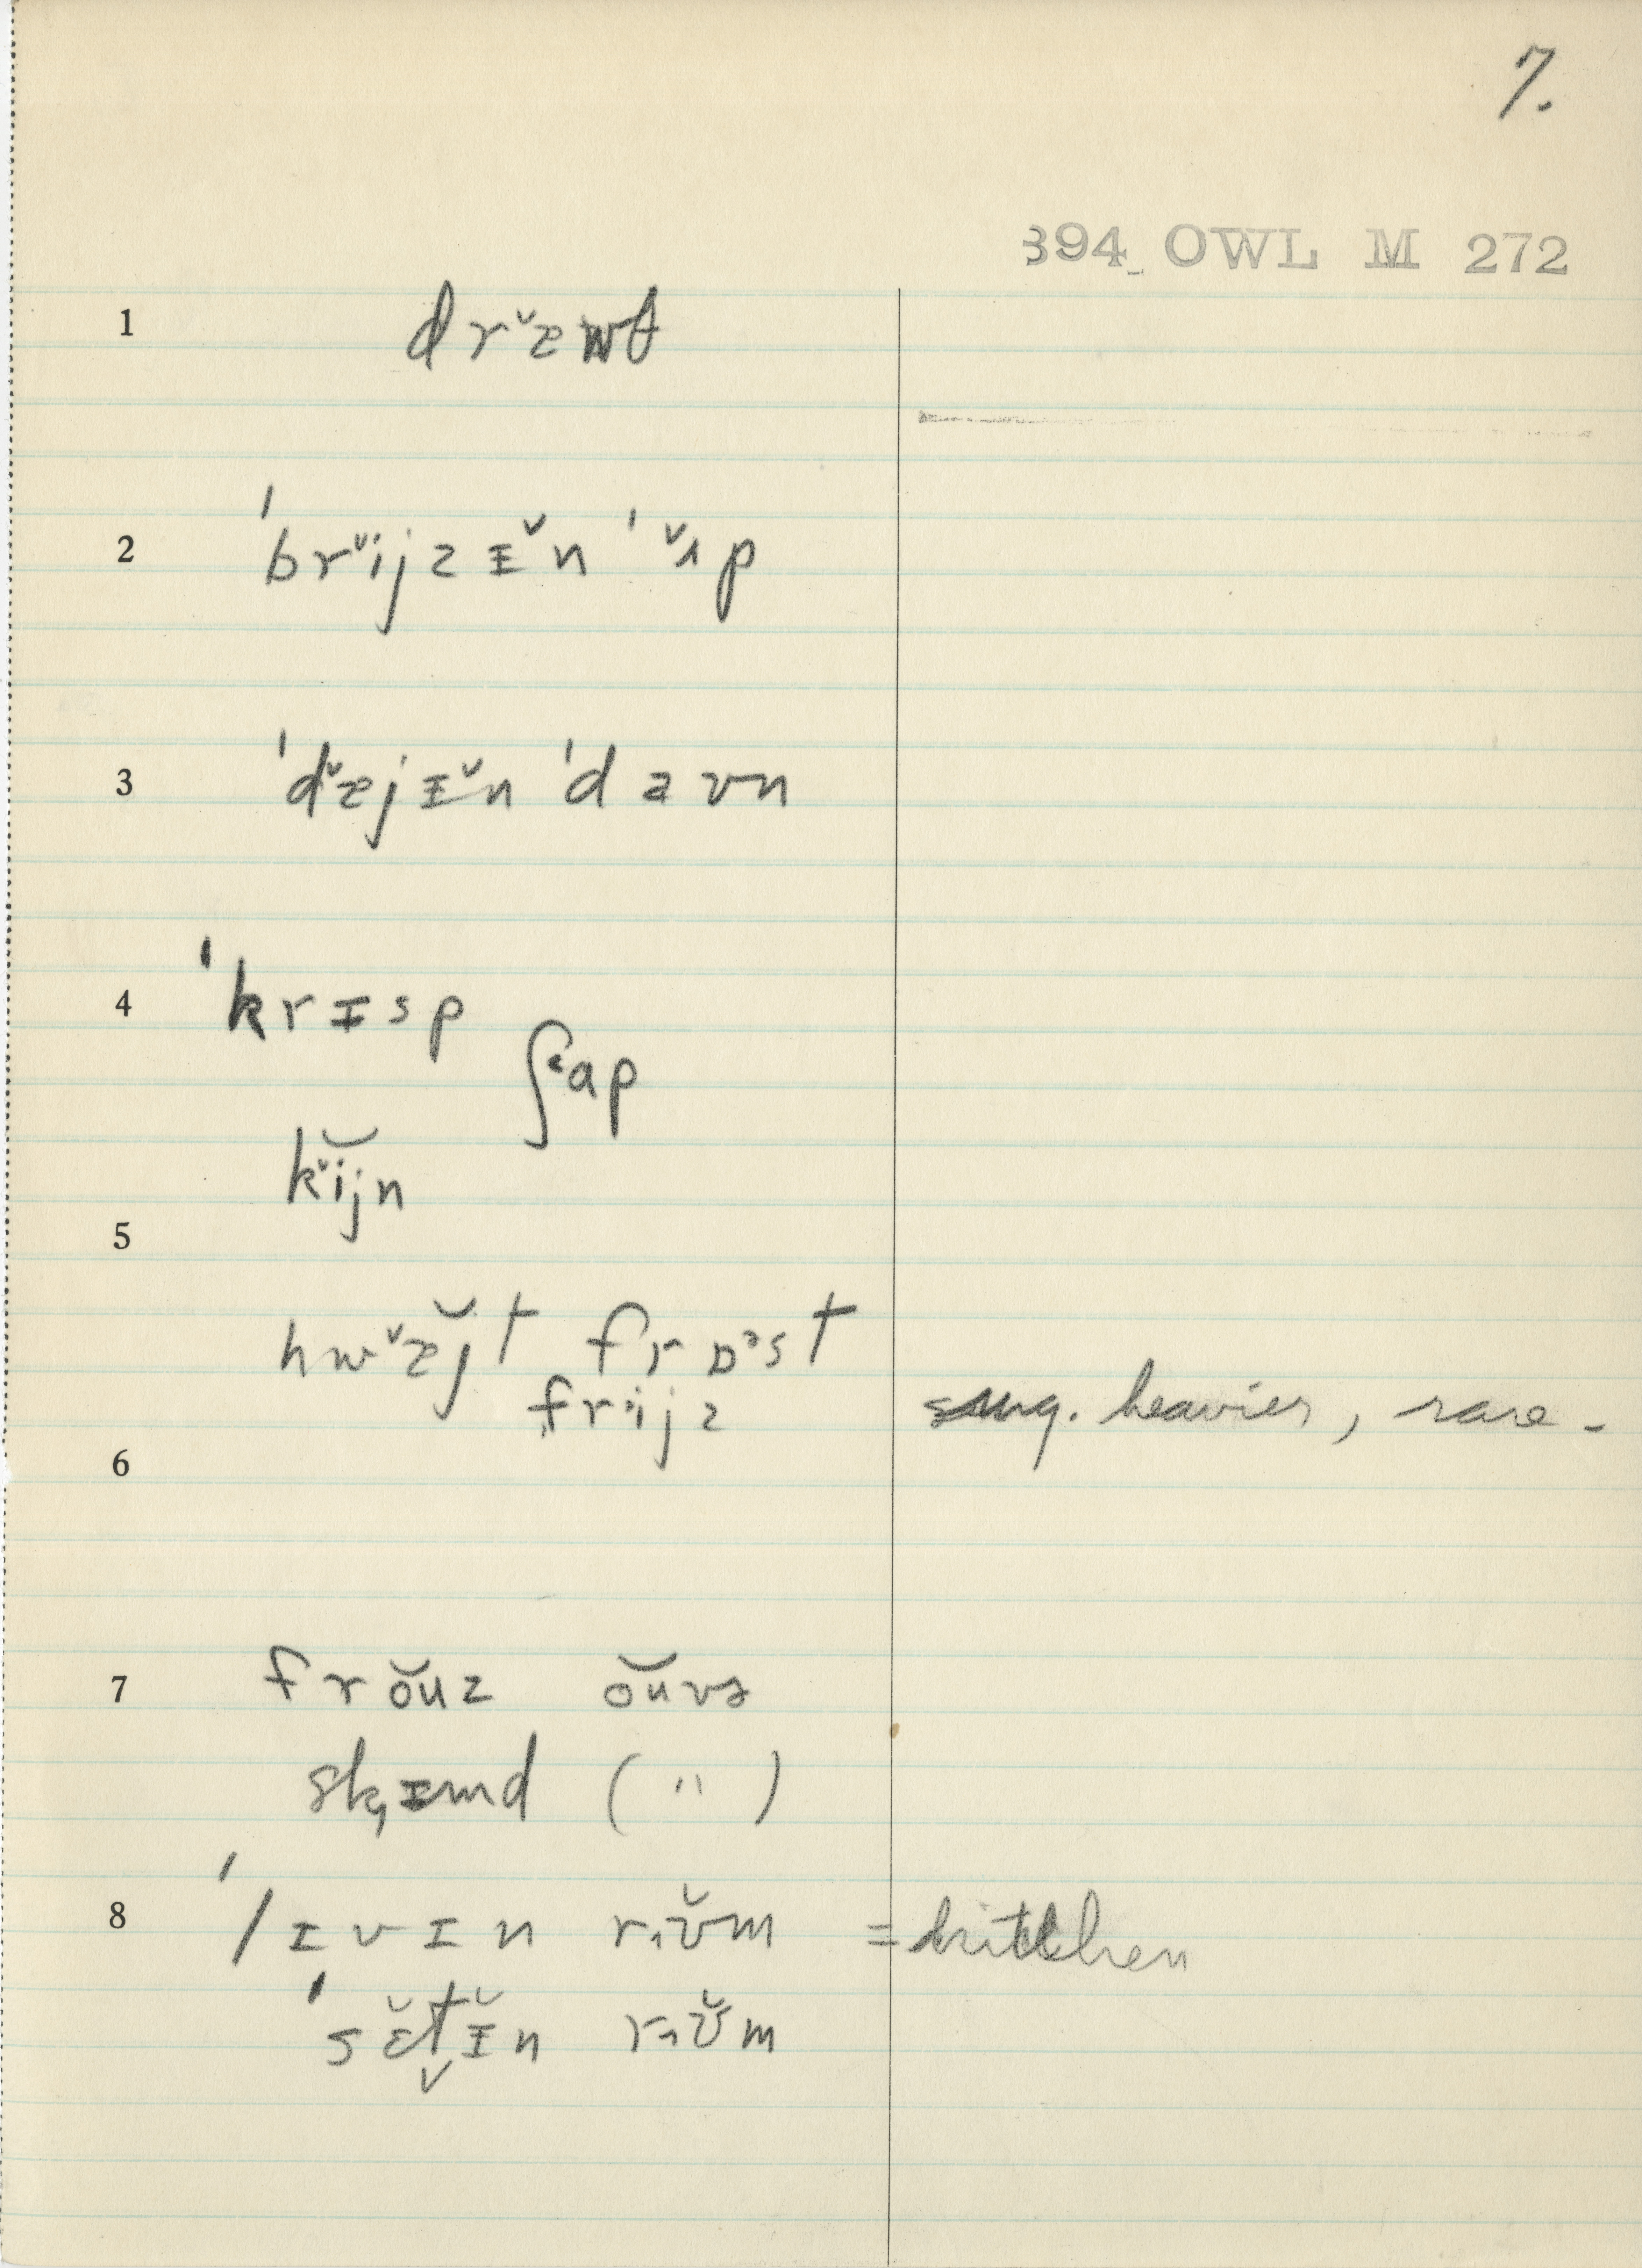 7.
394 OWL M 272
1 dr˅æwθ
2 ˈbr˅ijzɪ̆n ˈ˅ʌp
3 ˈd˅æjɪ̆n ˈdaʊn
4 ˈkrɪsp
ʃ˂ap
k˅ĭjn
5
hw˅æ̆jt frɒᵊst
frijz heavier, rare.
6
7 frŏuz ŏuvɚ
sk̡ɪmd ( " )
8 ˈlɪvɪn r˔ʊ̆m = kitchen
ˈsɛ̆t̬ɪ̆n r˔ʊ̆m